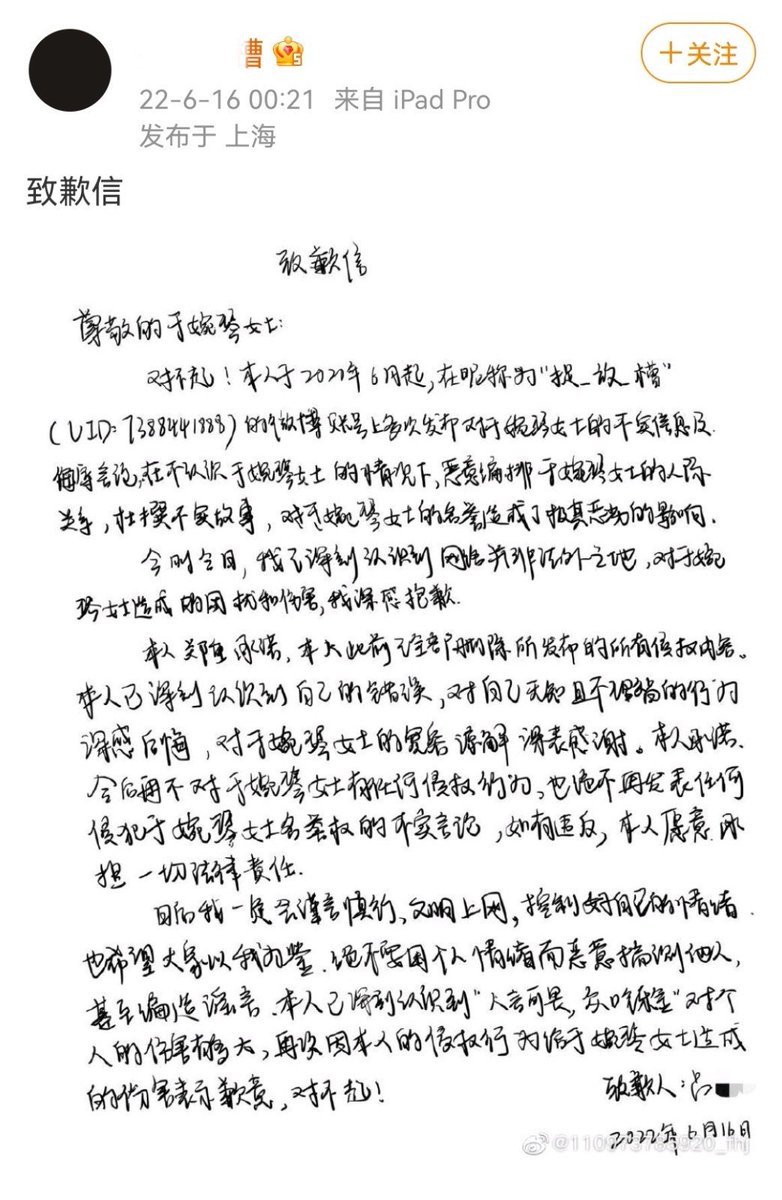 曹 5
+关注
22-6-16 00:21 来自 iPad Pro
发布于 上海
致歉信
致歉信
尊敬的于婉琴女士:
对不起！本人于2021年6月起,在昵称为"捉_放_槽"
(UID:7388441888)的微博账号上多次发布对于婉琴女士的不实信息及
侮辱言论,在不认识于婉琴女士的情况下,恶意编排于婉琴女士的人际
关系,杜撰不实故事,对于婉琴女士的名誉造成了极其恶劣的影响.
今时今日,我已深刻认识到网络并非法外之地,对于婉
琴女士造成的困扰和伤害,我深感抱歉.
本人郑重承诺,本人此前已全部删除所发布的所有侵权内容。
本人已深刻认识到自己的错误,对自己无知且不理智的行为
深感后悔,对于婉琴女士的宽容谅解深表感谢。本人承诺.
今后再不对于婉琴女士有任何侵权行为,也绝不再发表任何
侵犯于婉琴女士名誉权的不实言论,如有违反,本人愿意承
担一切法律责任.
日后我一定会谨言慎行、文明上网,控制好自己的情绪.
也希望大家以我为鉴.绝不要因个人情绪而恶意揣测他人,
甚至编造谣言.本人已深刻认识到"人言可畏,众口铄金"对个
人的伤害有多大,再次因本人的侵权行为给于婉琴女士造成
的伤害表示歉意,对不起!
致歉人:吕
2022年6月16日